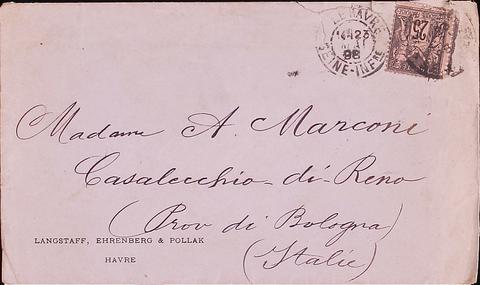 LE HAVRE
23
98
SEINE-INFRE
25
Madame A. Marconi
Casalecchio-di-Reno
(Prov di Bologna)
LANGSTAFF, EHRENBERG & POLLAK
HAVRE
(Italie)